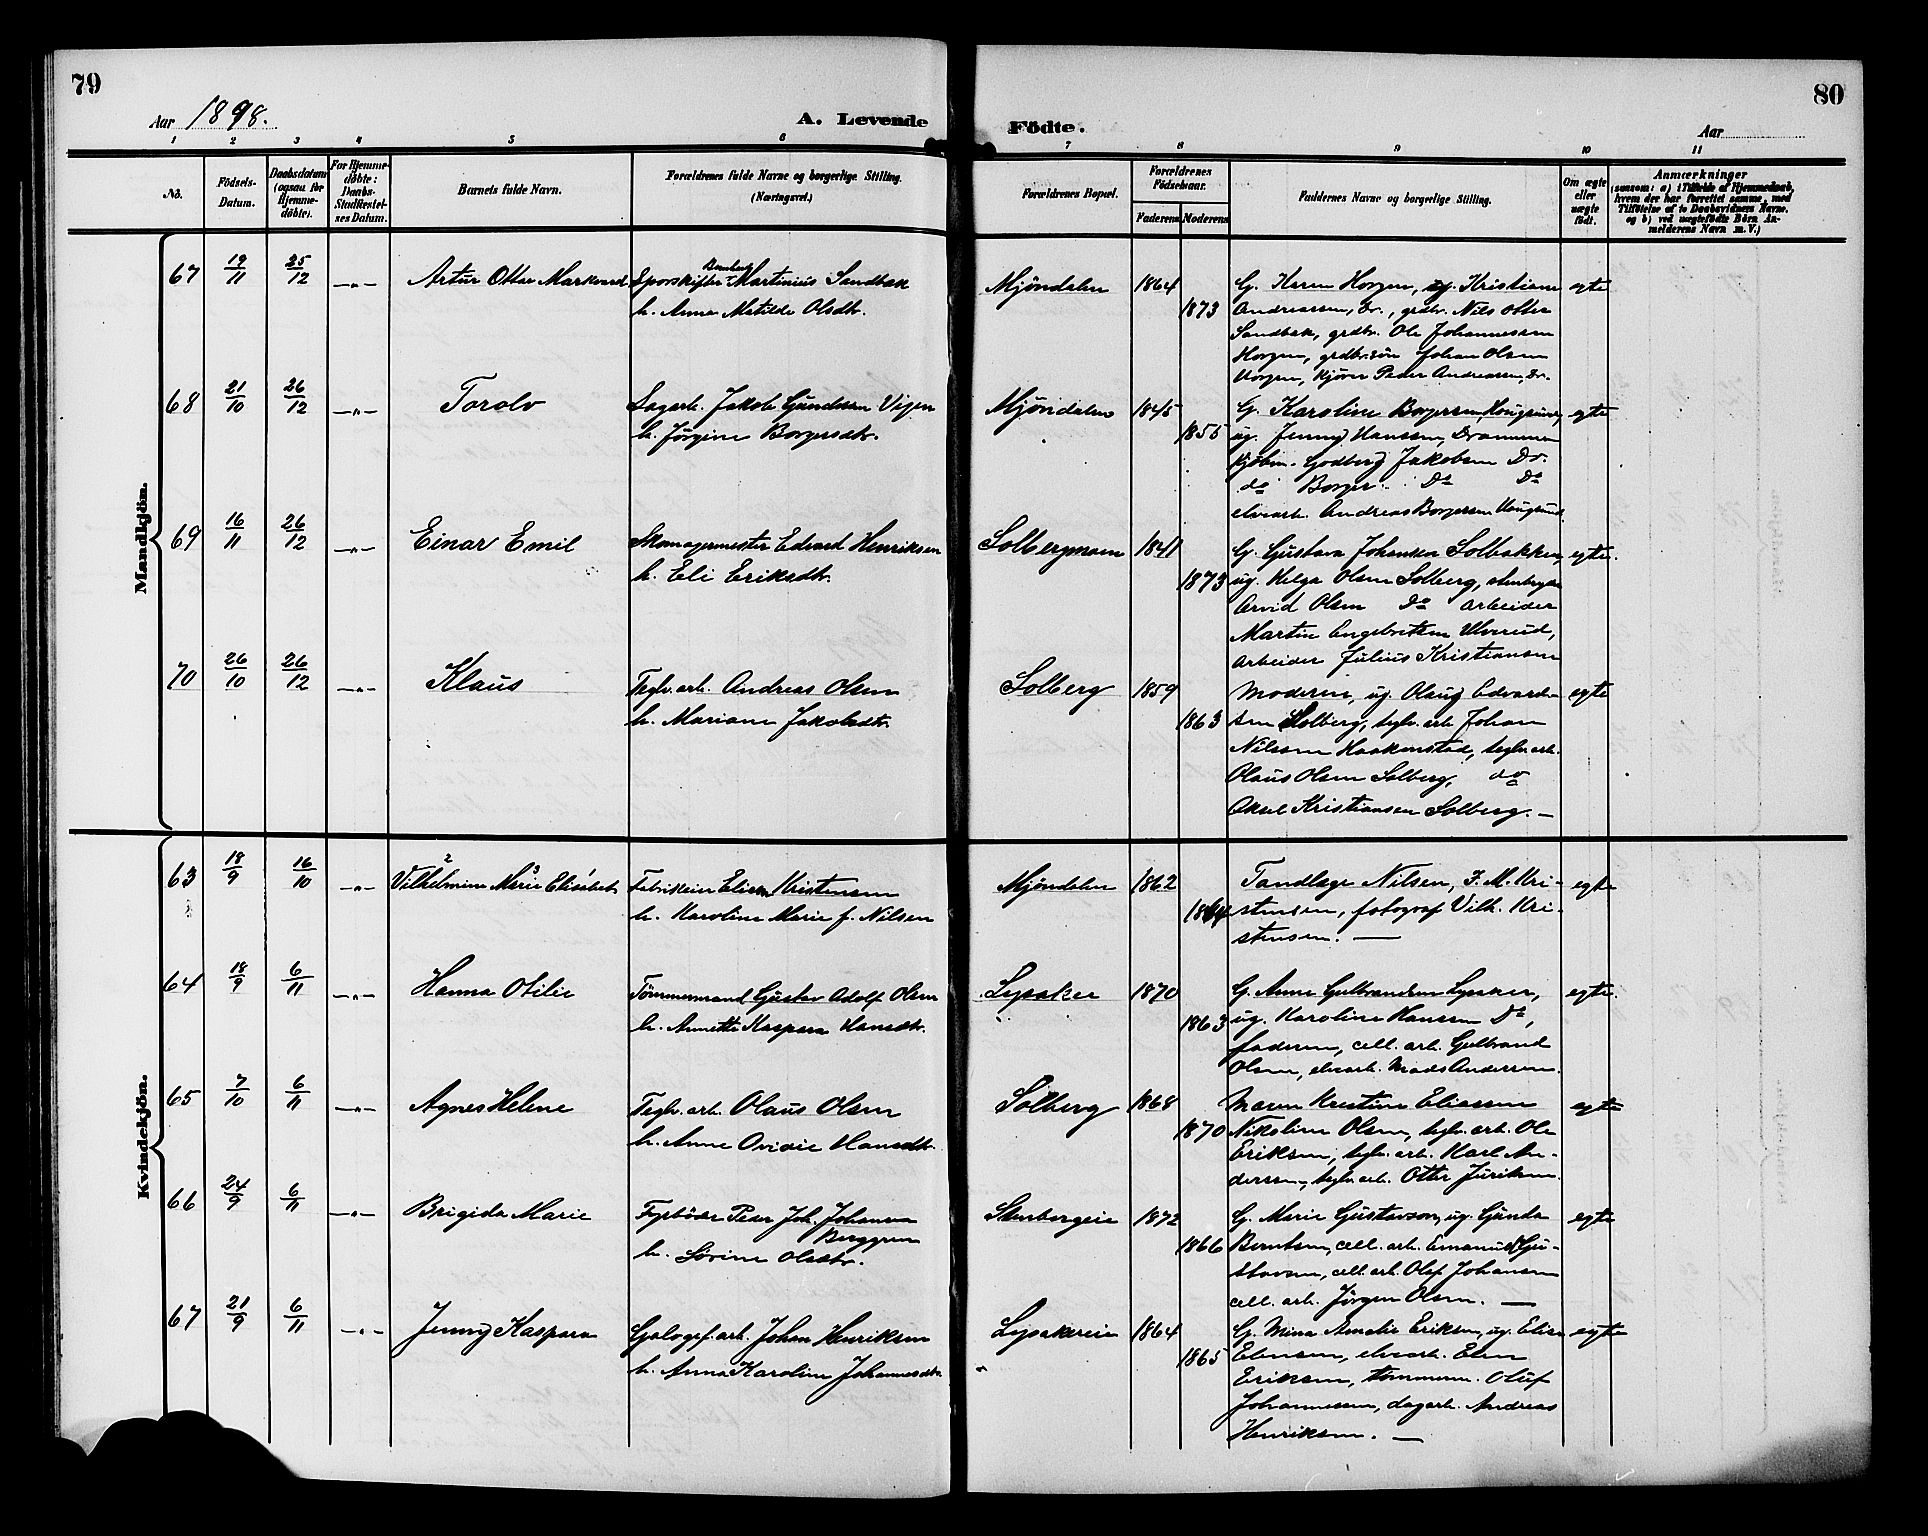 79
80
Aar 1898.
A. Levende
Födte.
Aar
1 2 3 4 5 6 7 8 9 10 11
No.
Födsels-Datum.
Daabsdatum (ogsaa for Hjemmedöbte).
For Hjemmedöbte: Daabs-Stadfæstelses Datum.
Barnets fulde Navn.
Forældrenes fulde Navne og borgerlige Stilling.
(Næringsvei.)
Forældrenes Bopæl.
Forældrenes Födselsaar.
Faderens
Moderens
Faddernes Navne og borgerlige Stilling.
Om ægte eller uægte födt.
Anmærkninger
(saasom: a) i Tilfælde af Hjemmedaab, hvem der har forrettet samme, med Tilföielse af to Daabsvidners Navne, og b) ved uægtefödte Börn Anmelderens Navn m. V.)
Mandkjön.
67 19/11 25/12 -"- Artur Otto Markvard Sporskifter Martinius Sandbak Mjöndalen 1864 G. Karen Horgen, ug. Kristiane egte
h. Anna Matilde Olsdtr. 1873 Andreassen, Dr., grdbr. Nils Otto
Sandbak, grdbr. Ole Johannesen
Horgen, grdbr.sön Johan Olsen
Horgen, kjörer Peder Andreassen, Dr.
68 21/10 26/12 -"- Torolv Sagarb. Jakob Gundersen Mjöndalen 1845 G. Karoline Borgersen, egte
h. Jörgine Borgersdtr. 1855 ug. Jenny Hanssen, Drammen
kjöbm. Godberg Jakobsen Do.
do Borger Do Do
elvearb. Andreas Borgersen
69 16/11 26/12 -"- Einar Emil Skomagermester Edvard Henriksen Solbergmoen 1841 G. Gustava Johansen Solbakken, egte.
h. Eli Eriksdtr. 1873 ug. Helga Olsen Solberg,
Arvid Olsen Do arbeider
Martin Engebretsen Ulverud,
arbeider Julius Kristiansen
70 26/10 26/12 -"- Klaus Teglv.arb. Andreas Olsen Solberg 1859 Moderen, ug. Olaug Edvard- egte
h. Mariane Jakobsdtr. 1863 sen Solberg, teglv. arb. Johan
Nilsen Haakenstad, teglv. arb.
Olaus Olsen Solberg, do
Aksel Kristiansen Solberg. —
Kvindekjön.
63 18/9 16/10 -"- Vilhelmine Marie Elisabet Kristensen Mjöndalen 1862 Tandlæge Nilsen, F. M. Kri- egte
h. Karoline Marie f. Nilsen 1864 stensen, fotograf Vilh. Kri-
stensen. —
64 18/9 6/11 -"- Hanna Otilie Tömmermand Gustav Adolf Olsen Lysaker 1870 G. Anne Gulbrandsen Lysaker, egte.
h. Annette Kaspara Hansdtr. 1863 ug. Karoline Hansen Do,
faderen, cell. arb. Gulbrand
Olsen, elvearb. Mads Andersen.
65 7/10 6/11 -"- Agnes Helene Teglv. arb. Olaus Olsen Solberg 1868 Maren Kristine Eliassen egte
h. Anne Ovidie Hansdtr. 1870 Nikoline Olsen, teglv. arb. Ole
Eriksen, teglv. arb. Karl An-
dersen, teglv. arb. Otto Juriksen.
66 24/9 6/11 -"- Brigida Marie Fyrböder Peder Joh. Johansen Stenbergeie 1872 G. Marie Gustavson, ug. Gunda egte
Berggren
h. Sörine Olsdtr. 1866 Berntsen, cell. arb. Emanuel Gu-
stavsen, cell. arb. Olaf Johansen
cell. arb. Jörgen Olsen. —
67 21/9 6/11 -"- Jenny Kaspara Johan Henriksen Lysakereie 1864 G. Mina Amalie Eriksen, ug. Elise egte
h. Anna Karoline Johannesdtr. 1865 Ellensen, elvearb. Elen
Eriksen, tömmerm. Oluf
Johannesen, dagarb. Andreas
Henriksen. —